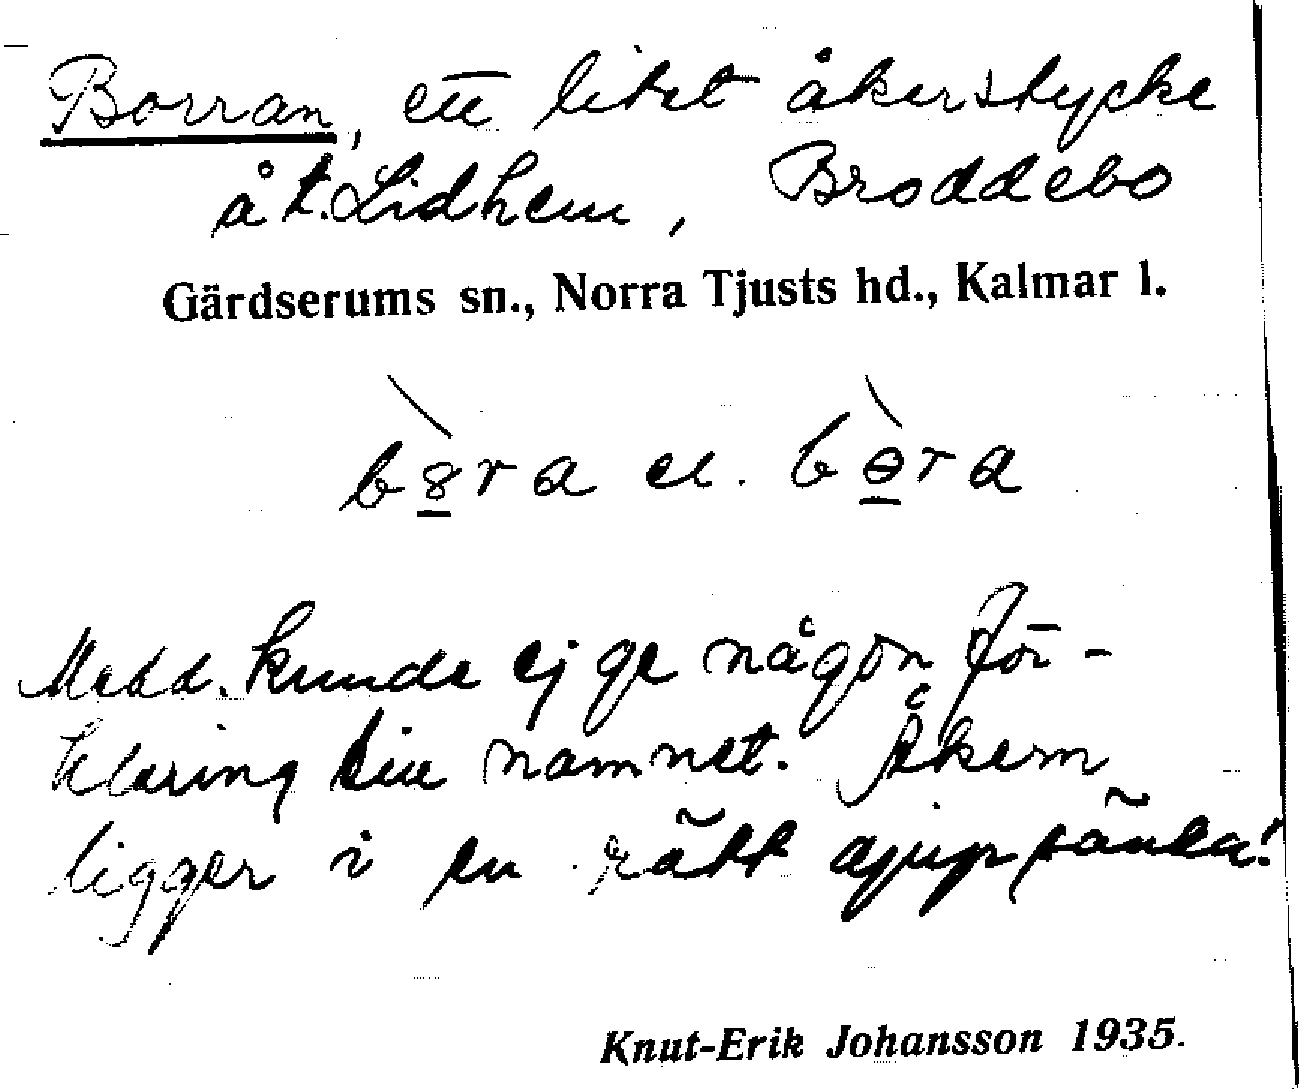 Borran, ett litet åkerstycke
å t. Lidhem, Broddebo
Gärdserums sn., Norra Tjusts hd., Kalmar l.
b8̲̀ra el. bɵ̲̀ra
Medd. kunde ej ge någon för-
klaring till namnet. Åkern
ligger i en rätt djup sänka!
Knut-Erik Johansson 1935.